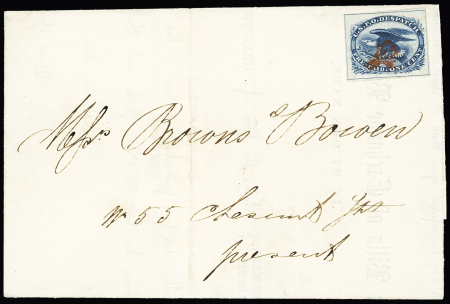 U.S.P.O. DESPATCH
PRE-PAID. ONE CENT
Messrs Browns & Bowen
No 55 Chesnut Str
present